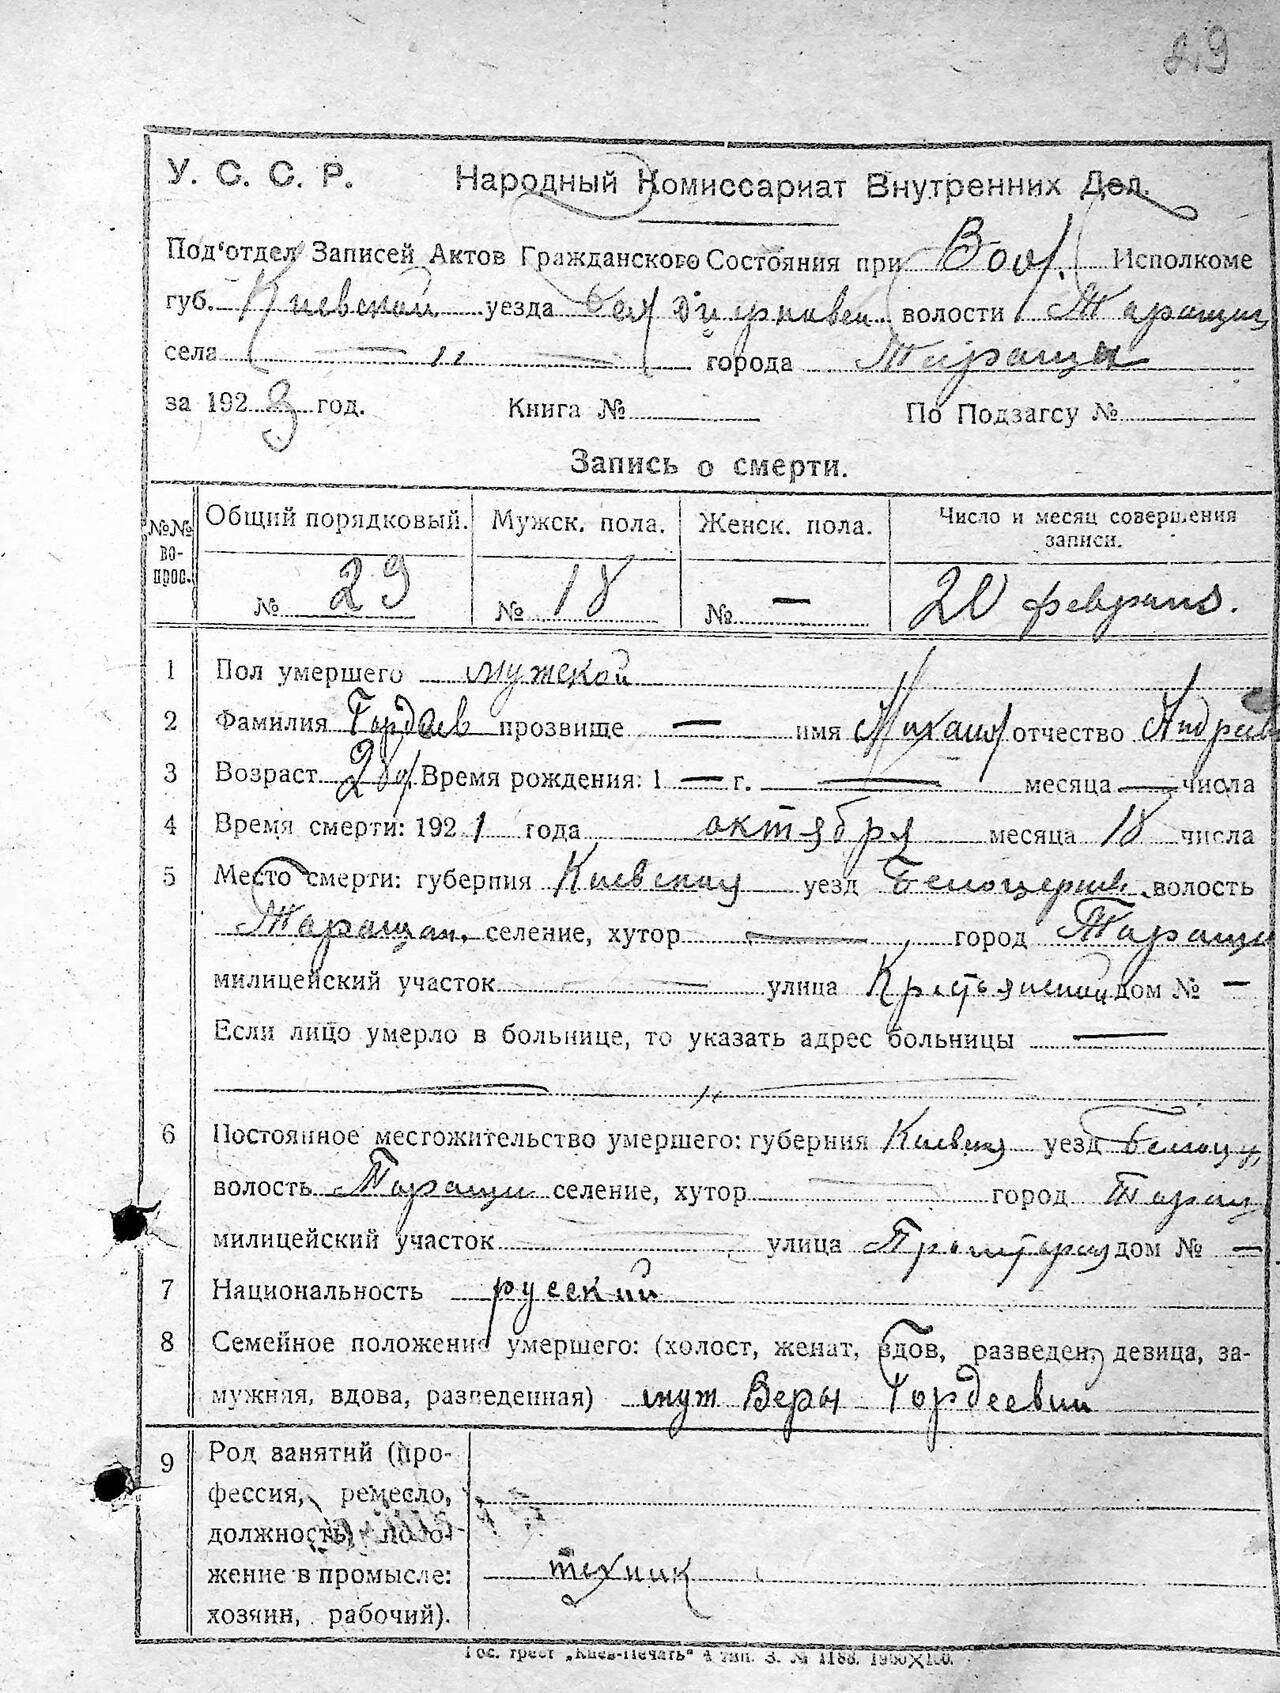 29
У. С. С. Р. Народный Комиссариат Внутренних Дел.
Под'отдел Записей Актов Гражданского Состояния при Вол. Исполкоме
губ. Киевской уезда волости Таращан
села — „ — города Таращи
за 1923 год. Книга № По Подзагсу №
Запись о смерти.
№№ во-прос. Общий порядковый. Мужск. пола. Женск. пола. Число и месяц совершения записи.
№ 29 № 18 № — 20 февраля.
1 Пол умершего мужской
2 Фамилия Гордеев прозвище — имя Михаил отчество Андреев
3 Возраст Время рождения: 1 — г. — месяца — числа
4 Время смерти: 1921 года октября месяца 18 числа
5 Место смерти: губерния Киевская уезд Белоцерков. волость
Таращан. селение, хутор — город Тараща
милицейский участок — улица дом № —
Если лицо умерло в больнице, то указать адрес больницы —
— „ —
6 Постоянное местожительство умершего: губерния Киевская уезд Белоц
волость селение, хутор — город Таращ
милицейский участок — улица дом № —
7 Национальность русский
8 Семейное положение умершего: (холост, женат, вдов, разведен, девица, за-
мужняя, вдова, разведенная) муж Веры Гордеевой
9 Род занятий (про-
фессия, ремесло,
должность, поло-
жение в промысле: техник
хозяин, рабочий).
Гос. трест „Киев-Печать“ 4 тип. З. № 1188. 1900×100.